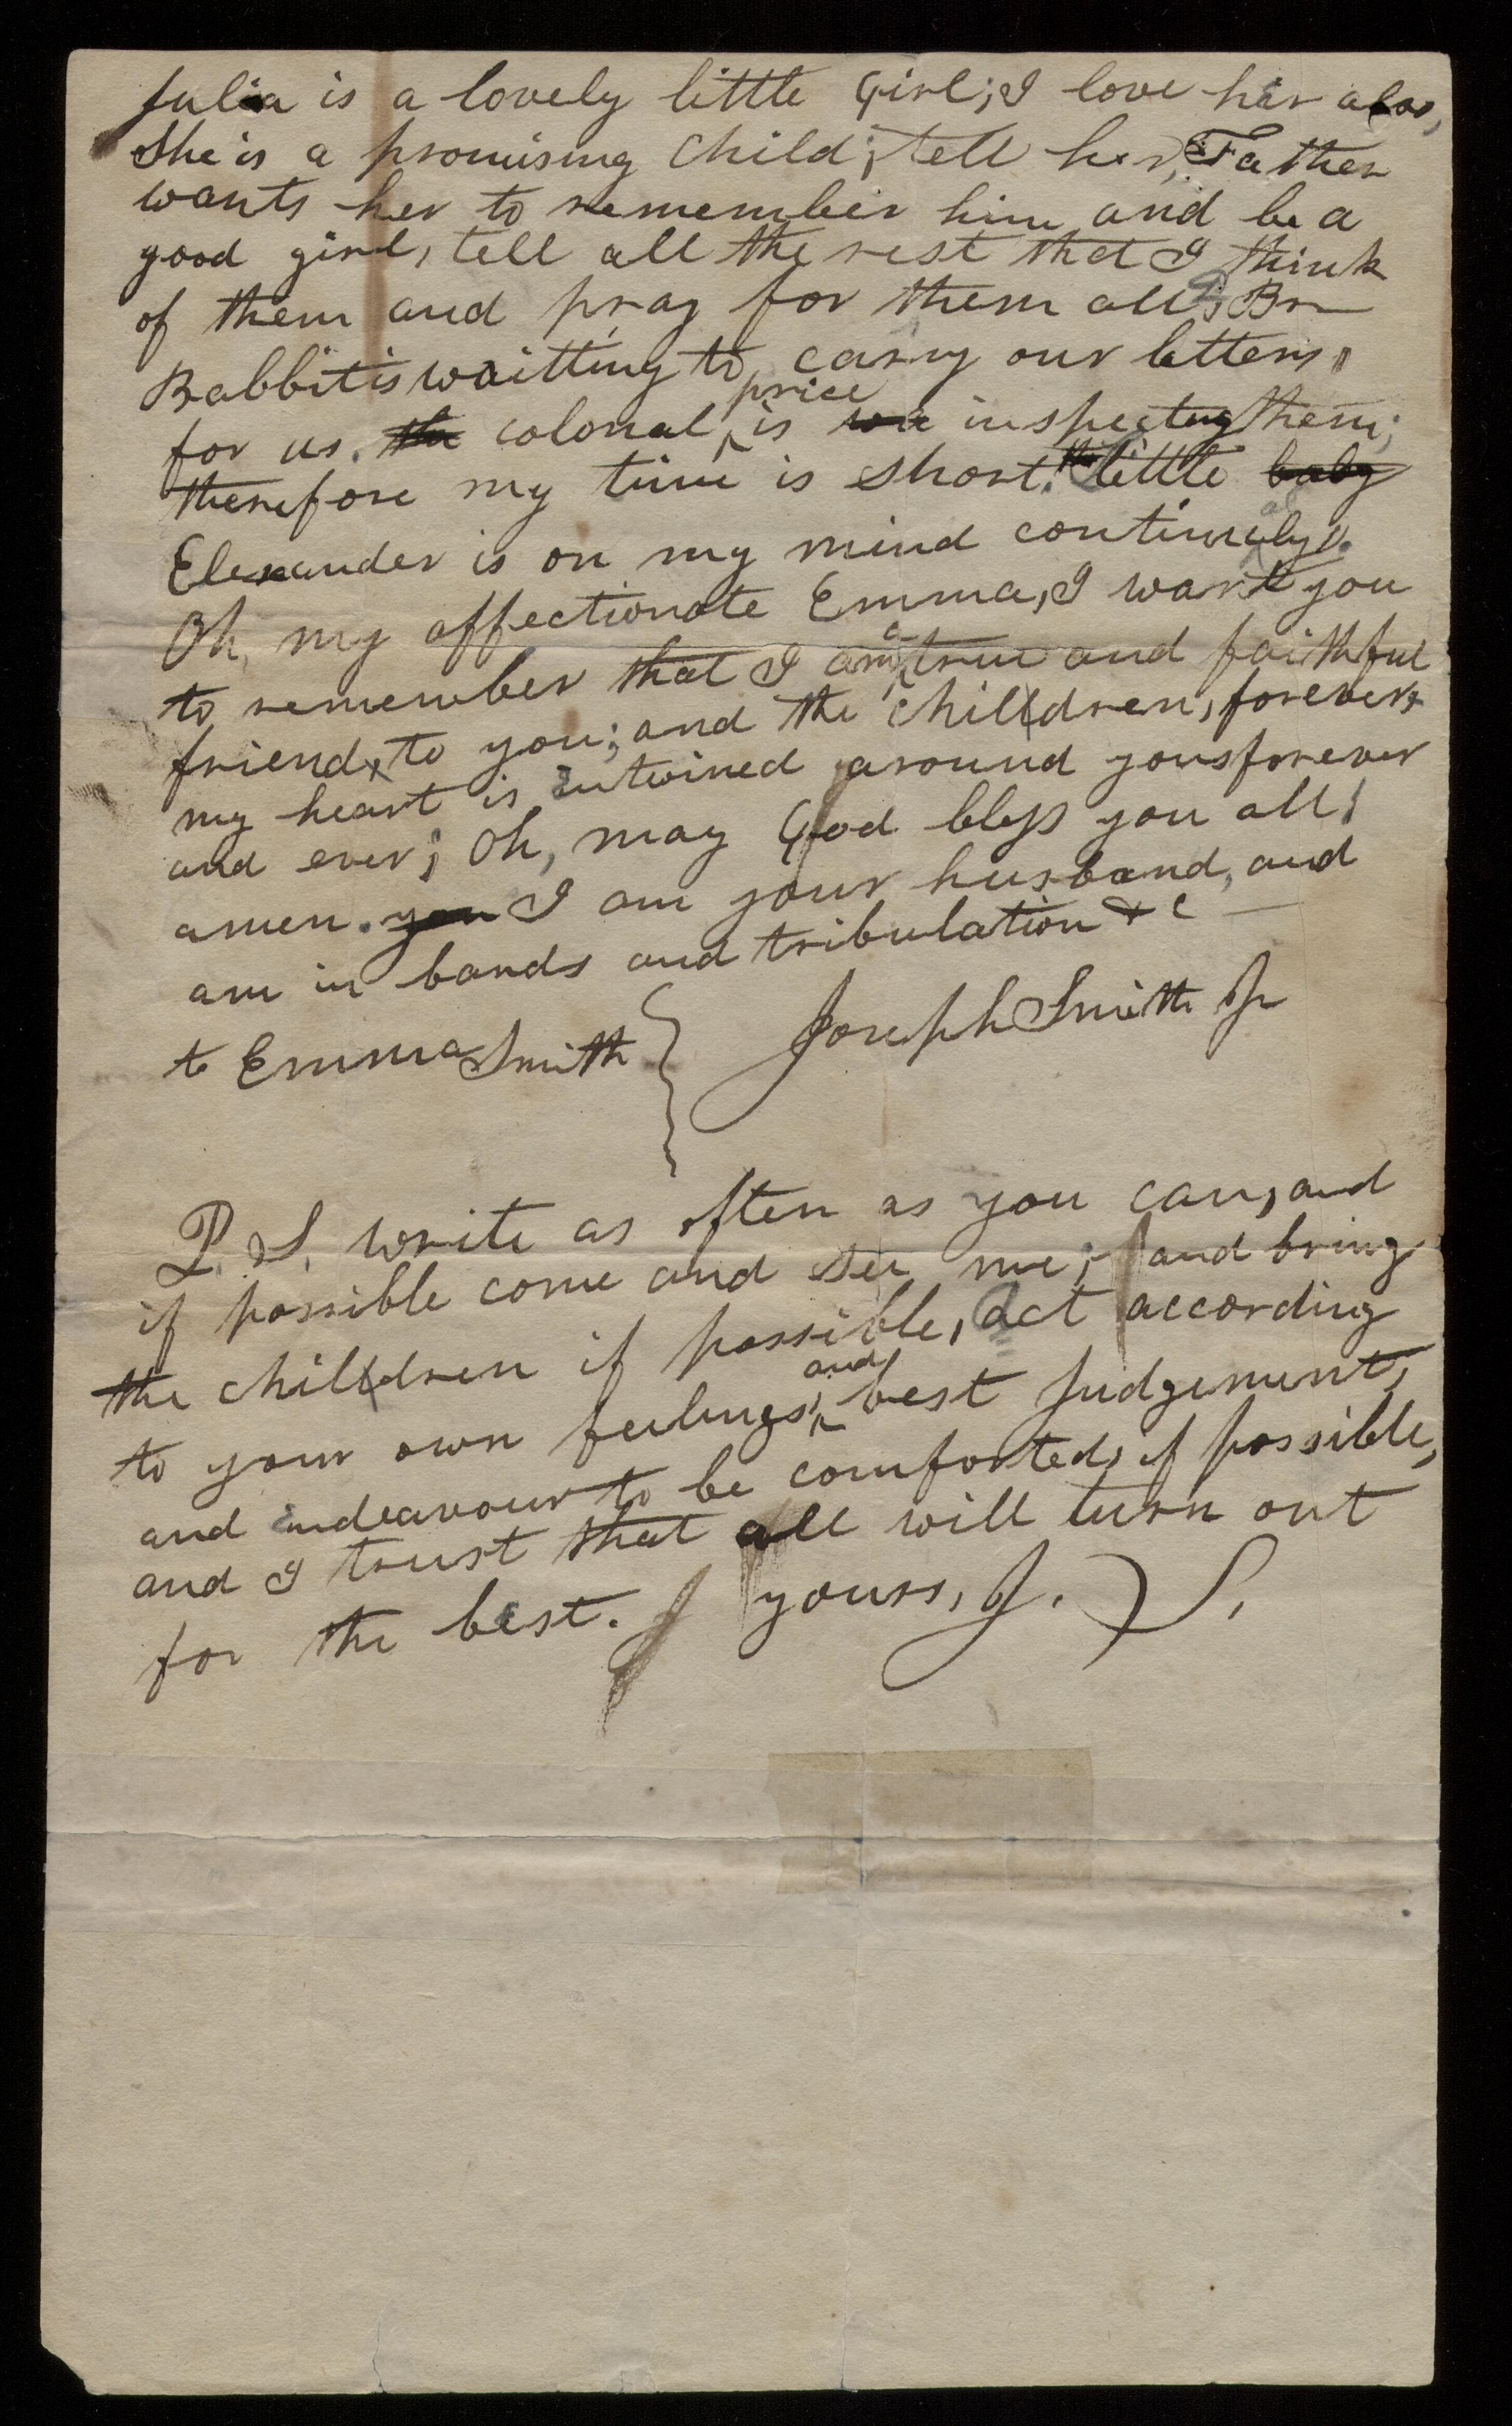 Julia is a lovely little Girl; I love hir also,
She is a promising Child; tell her, Father
wants her to remember him and be a
good girl, tell all the rest that I think
of them and pray for them all; Br
Babbit is waitting to carry our letters,
for us. the colonal, price is wa inspecting them;
therefore my time is short. the little baby
Elexander is on my mind continualy.
Oh, my affectionate Emma, I want you
to remember that I am a true and faithful
friend, to you; and the Children, forever,
my heart is intwined around yours forever
and ever; Oh, may God bless you all;
amen. you I am your husband, and
am in bands and tribulation &c —
to Emma Smith } Joseph Smith Jr
P. S. write as often as you can, and
if possible come and see me; and bring
the children if possible, act according
to your own feelings; and best Judgement,
and indeavour to be comforted, if possible,
and I trust that all will turn out
for the best. yours, J. S.